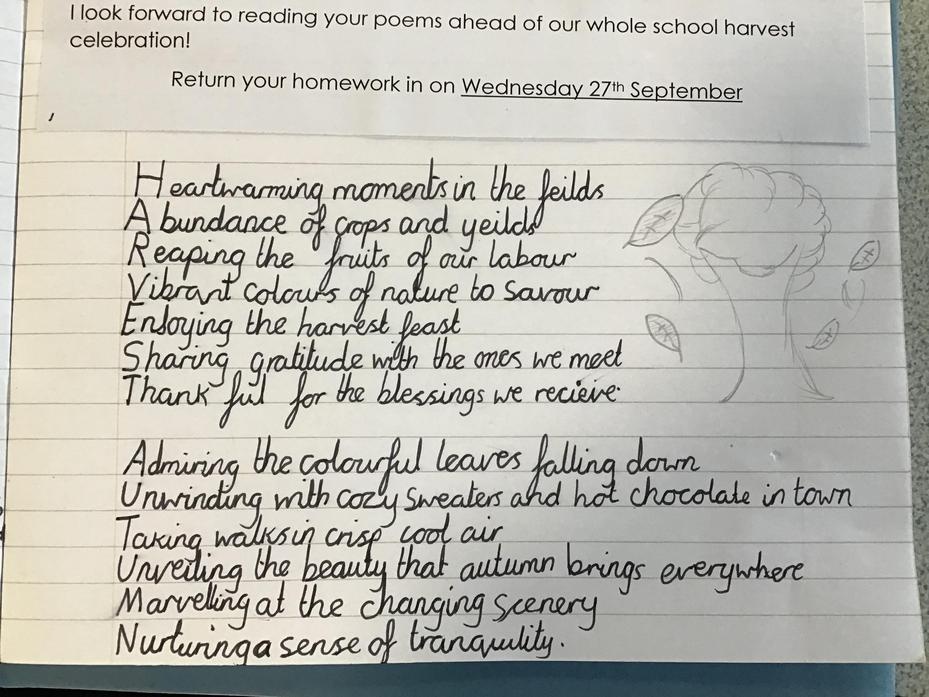 I look forward to reading your poems ahead of our whole school harvest
celebration!
Return your homework in on Wednesday 27th September
Heartwarming moments in the feilds
Abundance of crops and yeilds
Reaping the fruits of our labour
Vibrant colours of nature to savour
Enjoying the harvest feast
Sharing gratitude with the ones we meet
Thankful for the blessings we recieve.
Admiring the colourful leaves falling down
Unwinding with cozy sweaters and hot chocolate in town
Taking walks in crisp cool air
Unveiling the beauty that autumn brings everywhere
Marvelling at the changing scenery
Nurturing a sense of tranquility.